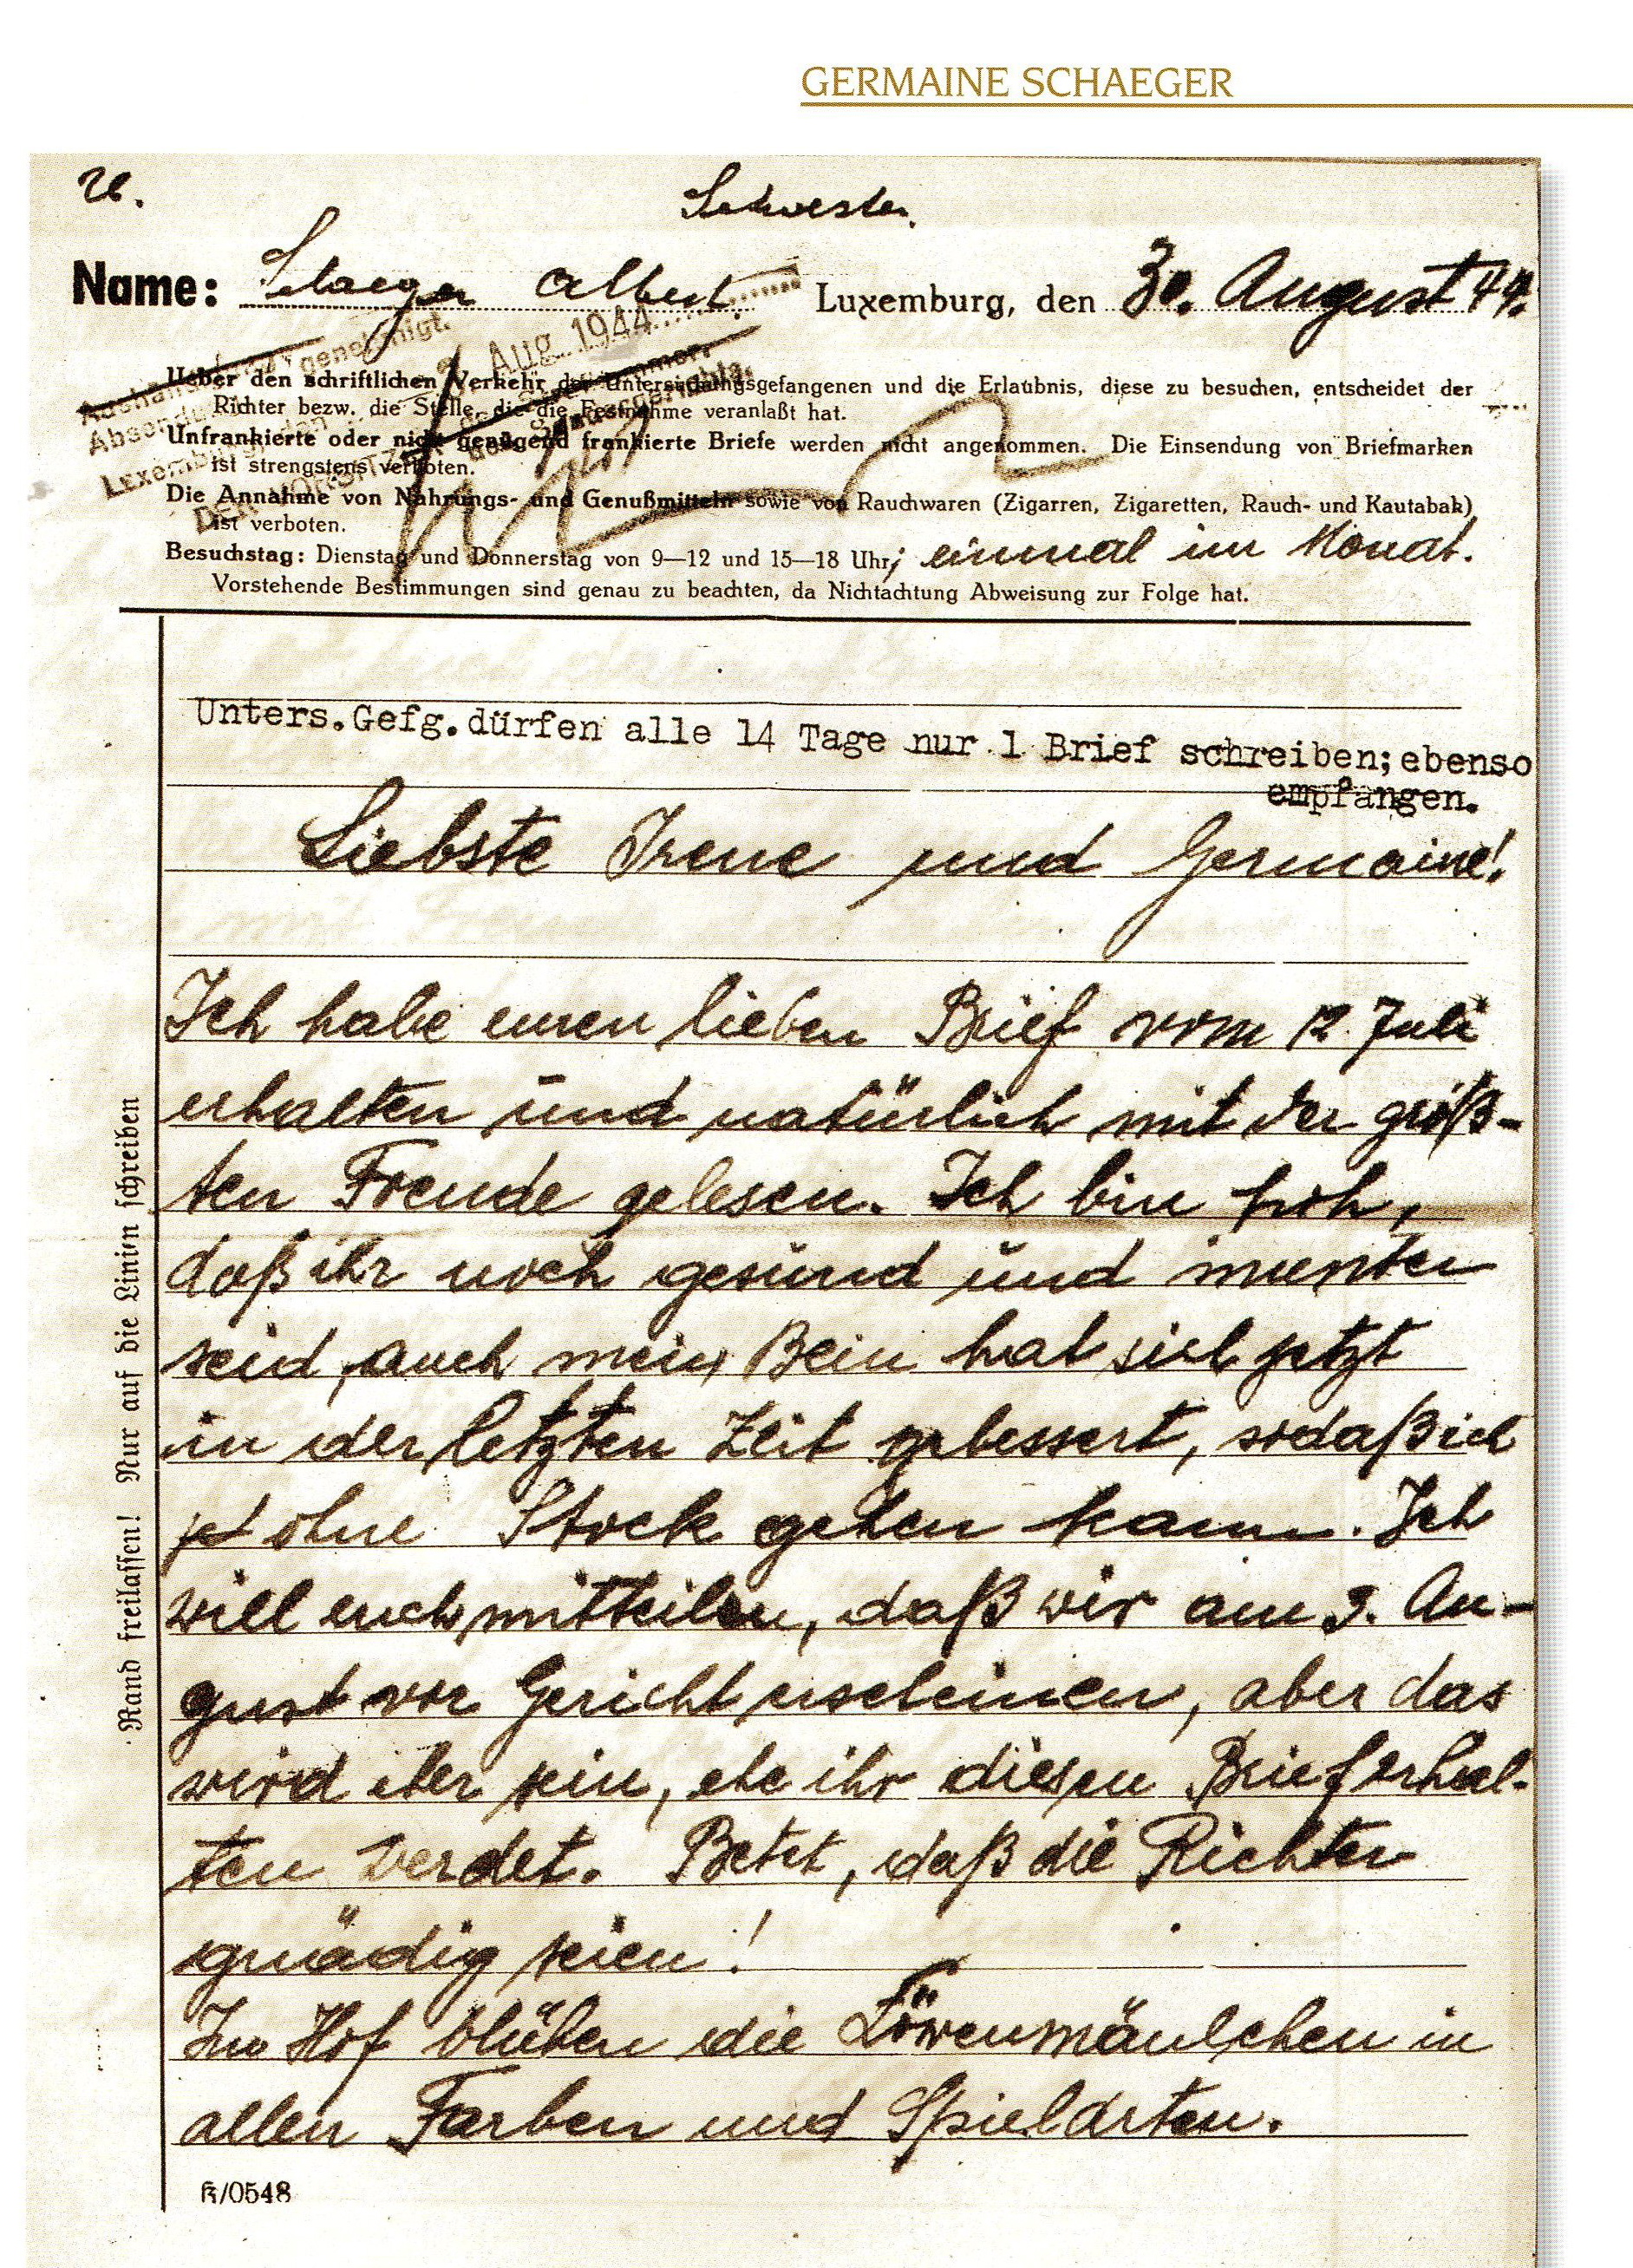 GERMAINE SCHAEGER
Schwester.
Name: Schaeger Albert. Luxemburg, den 30. August 44.
genehmigt.
Aug. 1944
Ueber den schriftlichen Verkehr der Untersuchungsgefangenen und die Erlaubnis, diese zu besuchen, entscheidet der
Richter bezw. die Stelle, die die Festnahme veranlaßt hat.
Unfrankierte oder nicht genügend frankierte Briefe werden nicht angenommen. Die Einsendung von Briefmarken
ist strengstens verboten.
Die Annahme von Nahrungs- und Genußmitteln sowie von Rauchwaren (Zigarren, Zigaretten, Rauch- und Kautabak)
ist verboten.
Besuchstag: Dienstag und Donnerstag von 9—12 und 15—18 Uhr; einmal im Monat.
Vorstehende Bestimmungen sind genau zu beachten, da Nichtachtung Abweisung zur Folge hat.
Unters.Gefg.dürfen alle 14 Tage nur 1 Brief schreiben;ebenso
empfangen.
Liebste Irene und Germaine!
Ich habe euren lieben Brief vom 12. Juli
erhalten und natürlich mit der größ-
ten Freude gelesen. Ich bin froh,
daß ihr noch gesund und munter
seid, auch mein Bein hat sich jetzt
in der letzten Zeit gebessert, sodaß ich
ohne Stock gehen kann. Ich
will euch mitteilen, daß wir am 3. Au-
gust vor Gericht erscheinen, aber das
wird eher sein, ehe ihr diesen Brief erhal-
ten werdet. Betet, daß die Richter
gnädig seien!
Im Hof blühen die Löwenmäulchen in
allen Farben und Spielarten.
Rand freilassen! Nur auf die Linien schreiben
K/0548